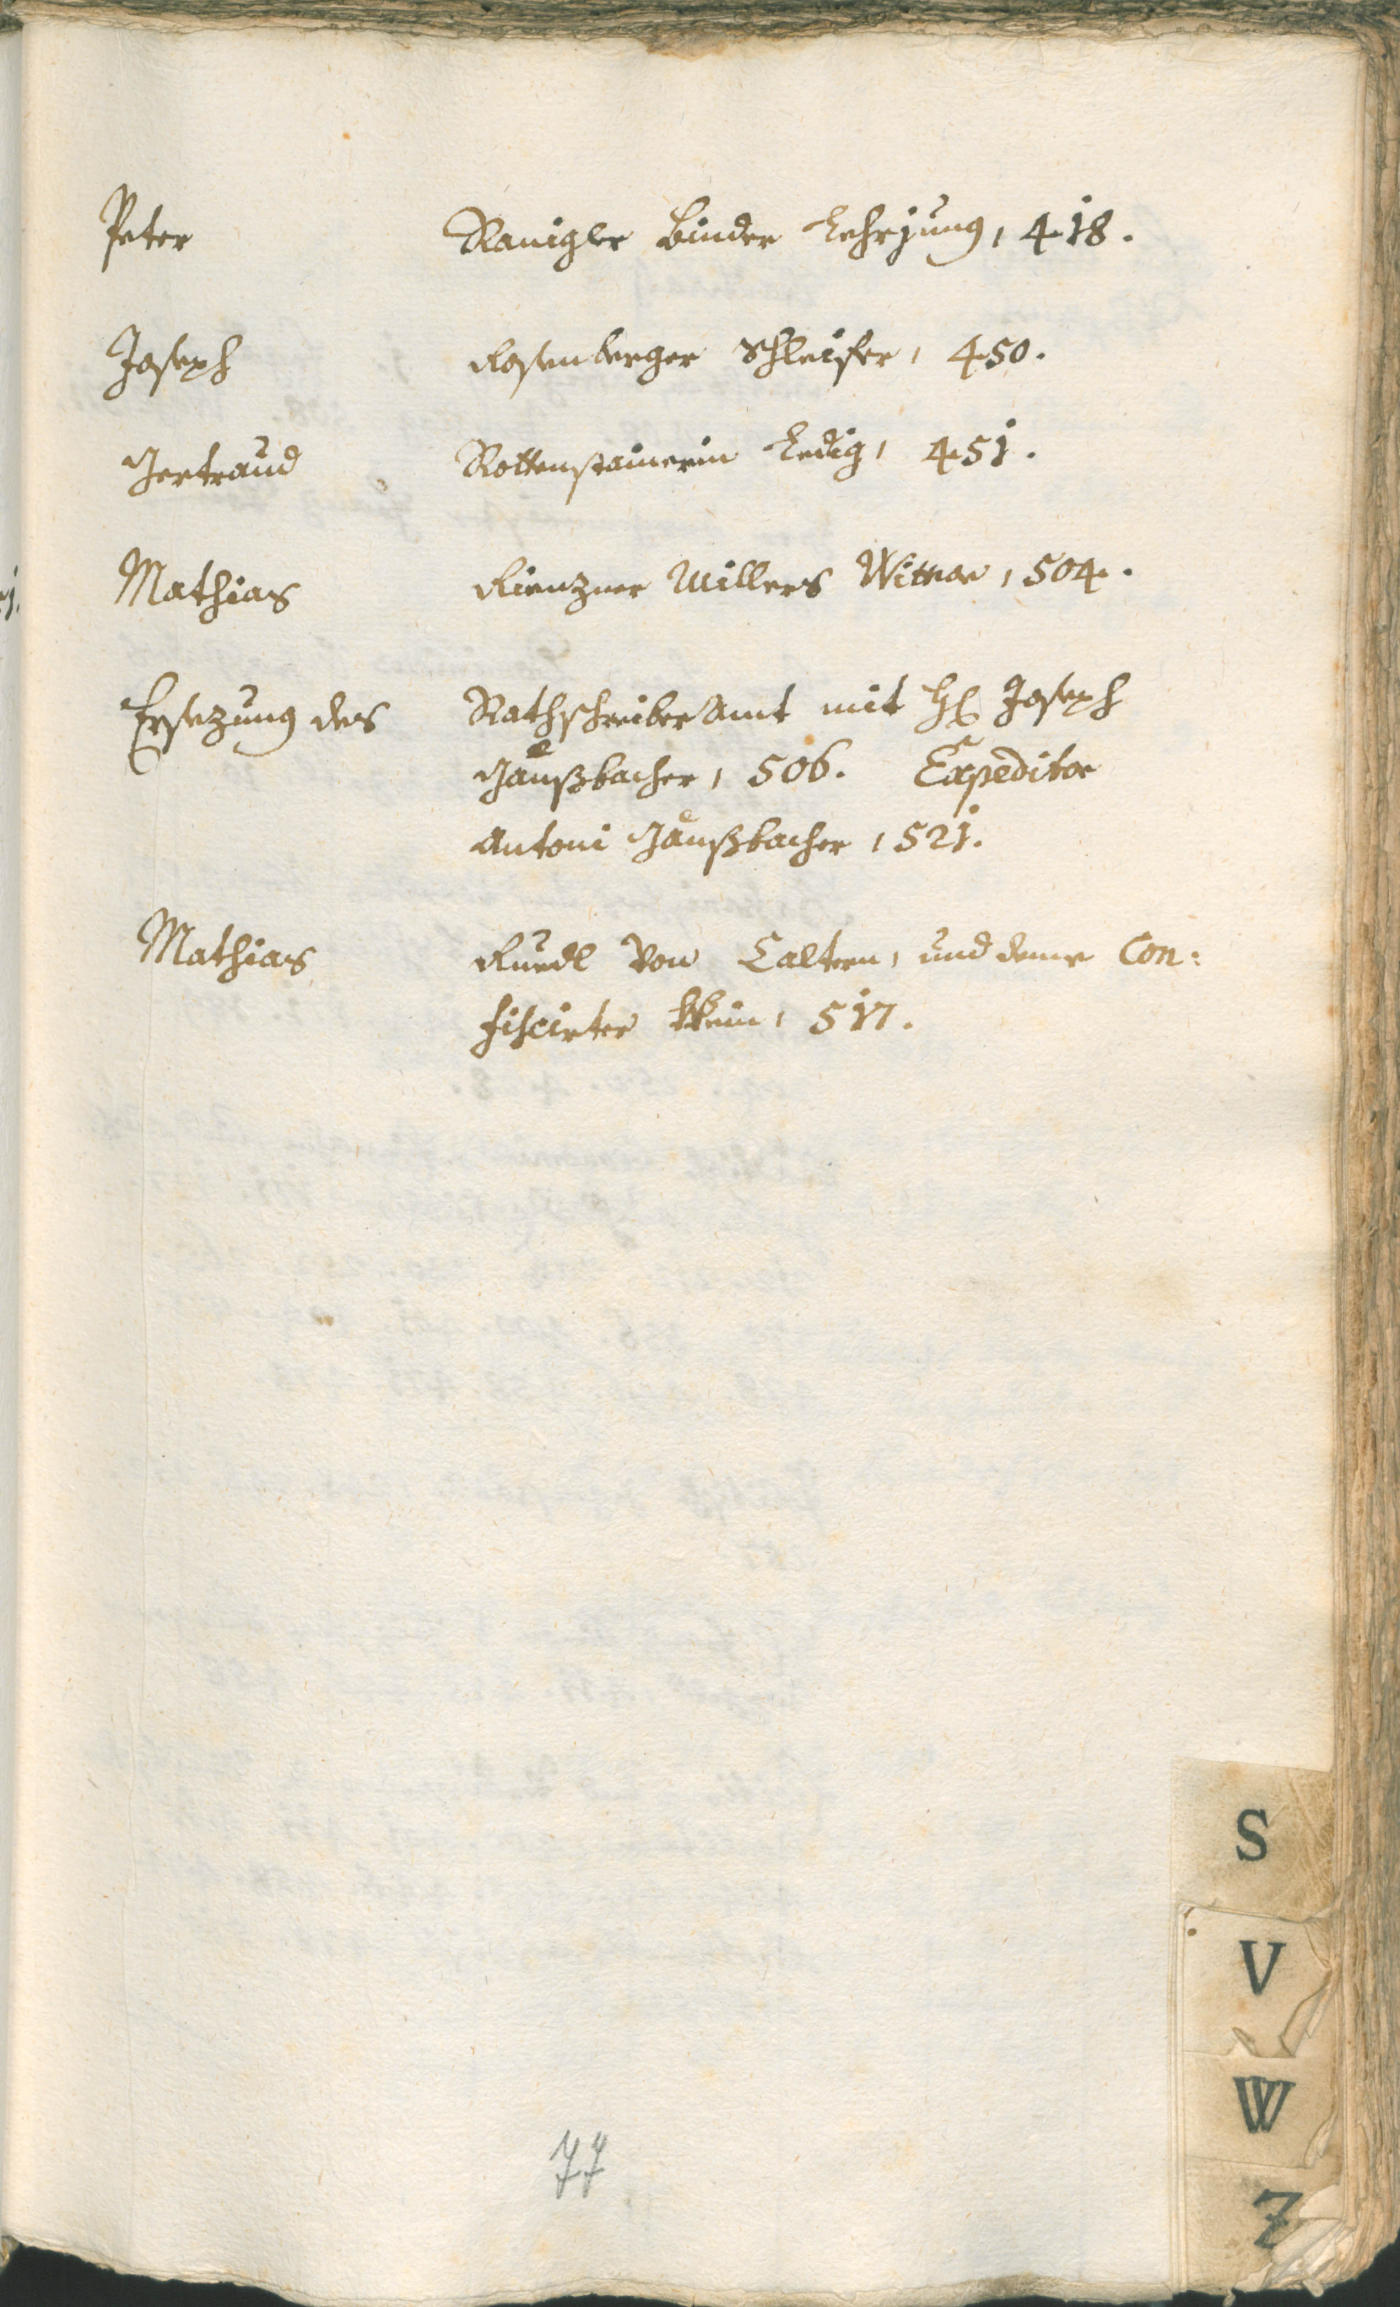 Peter Ranigler Binder Lehrjung, 418.
Joseph Rosenberger Schleifer, 450.
Gertraud Rottenstainerin Ledig, 451.
Mathias Rienzner Millers Wittwe, 504.
Ersezung des Rathschreiber Amt mit Hr Joseph
Gänsbacher, 506. Expeditor
Antoni Gänsbacher, 521.
Mathias Ruedl von Caltern, und deme Con:
fiscirter Wein, 517.
77
S
V
W
Z